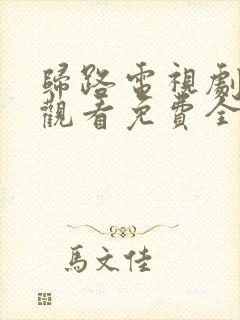 歸路電視劇
觀看免費全
馬文佳